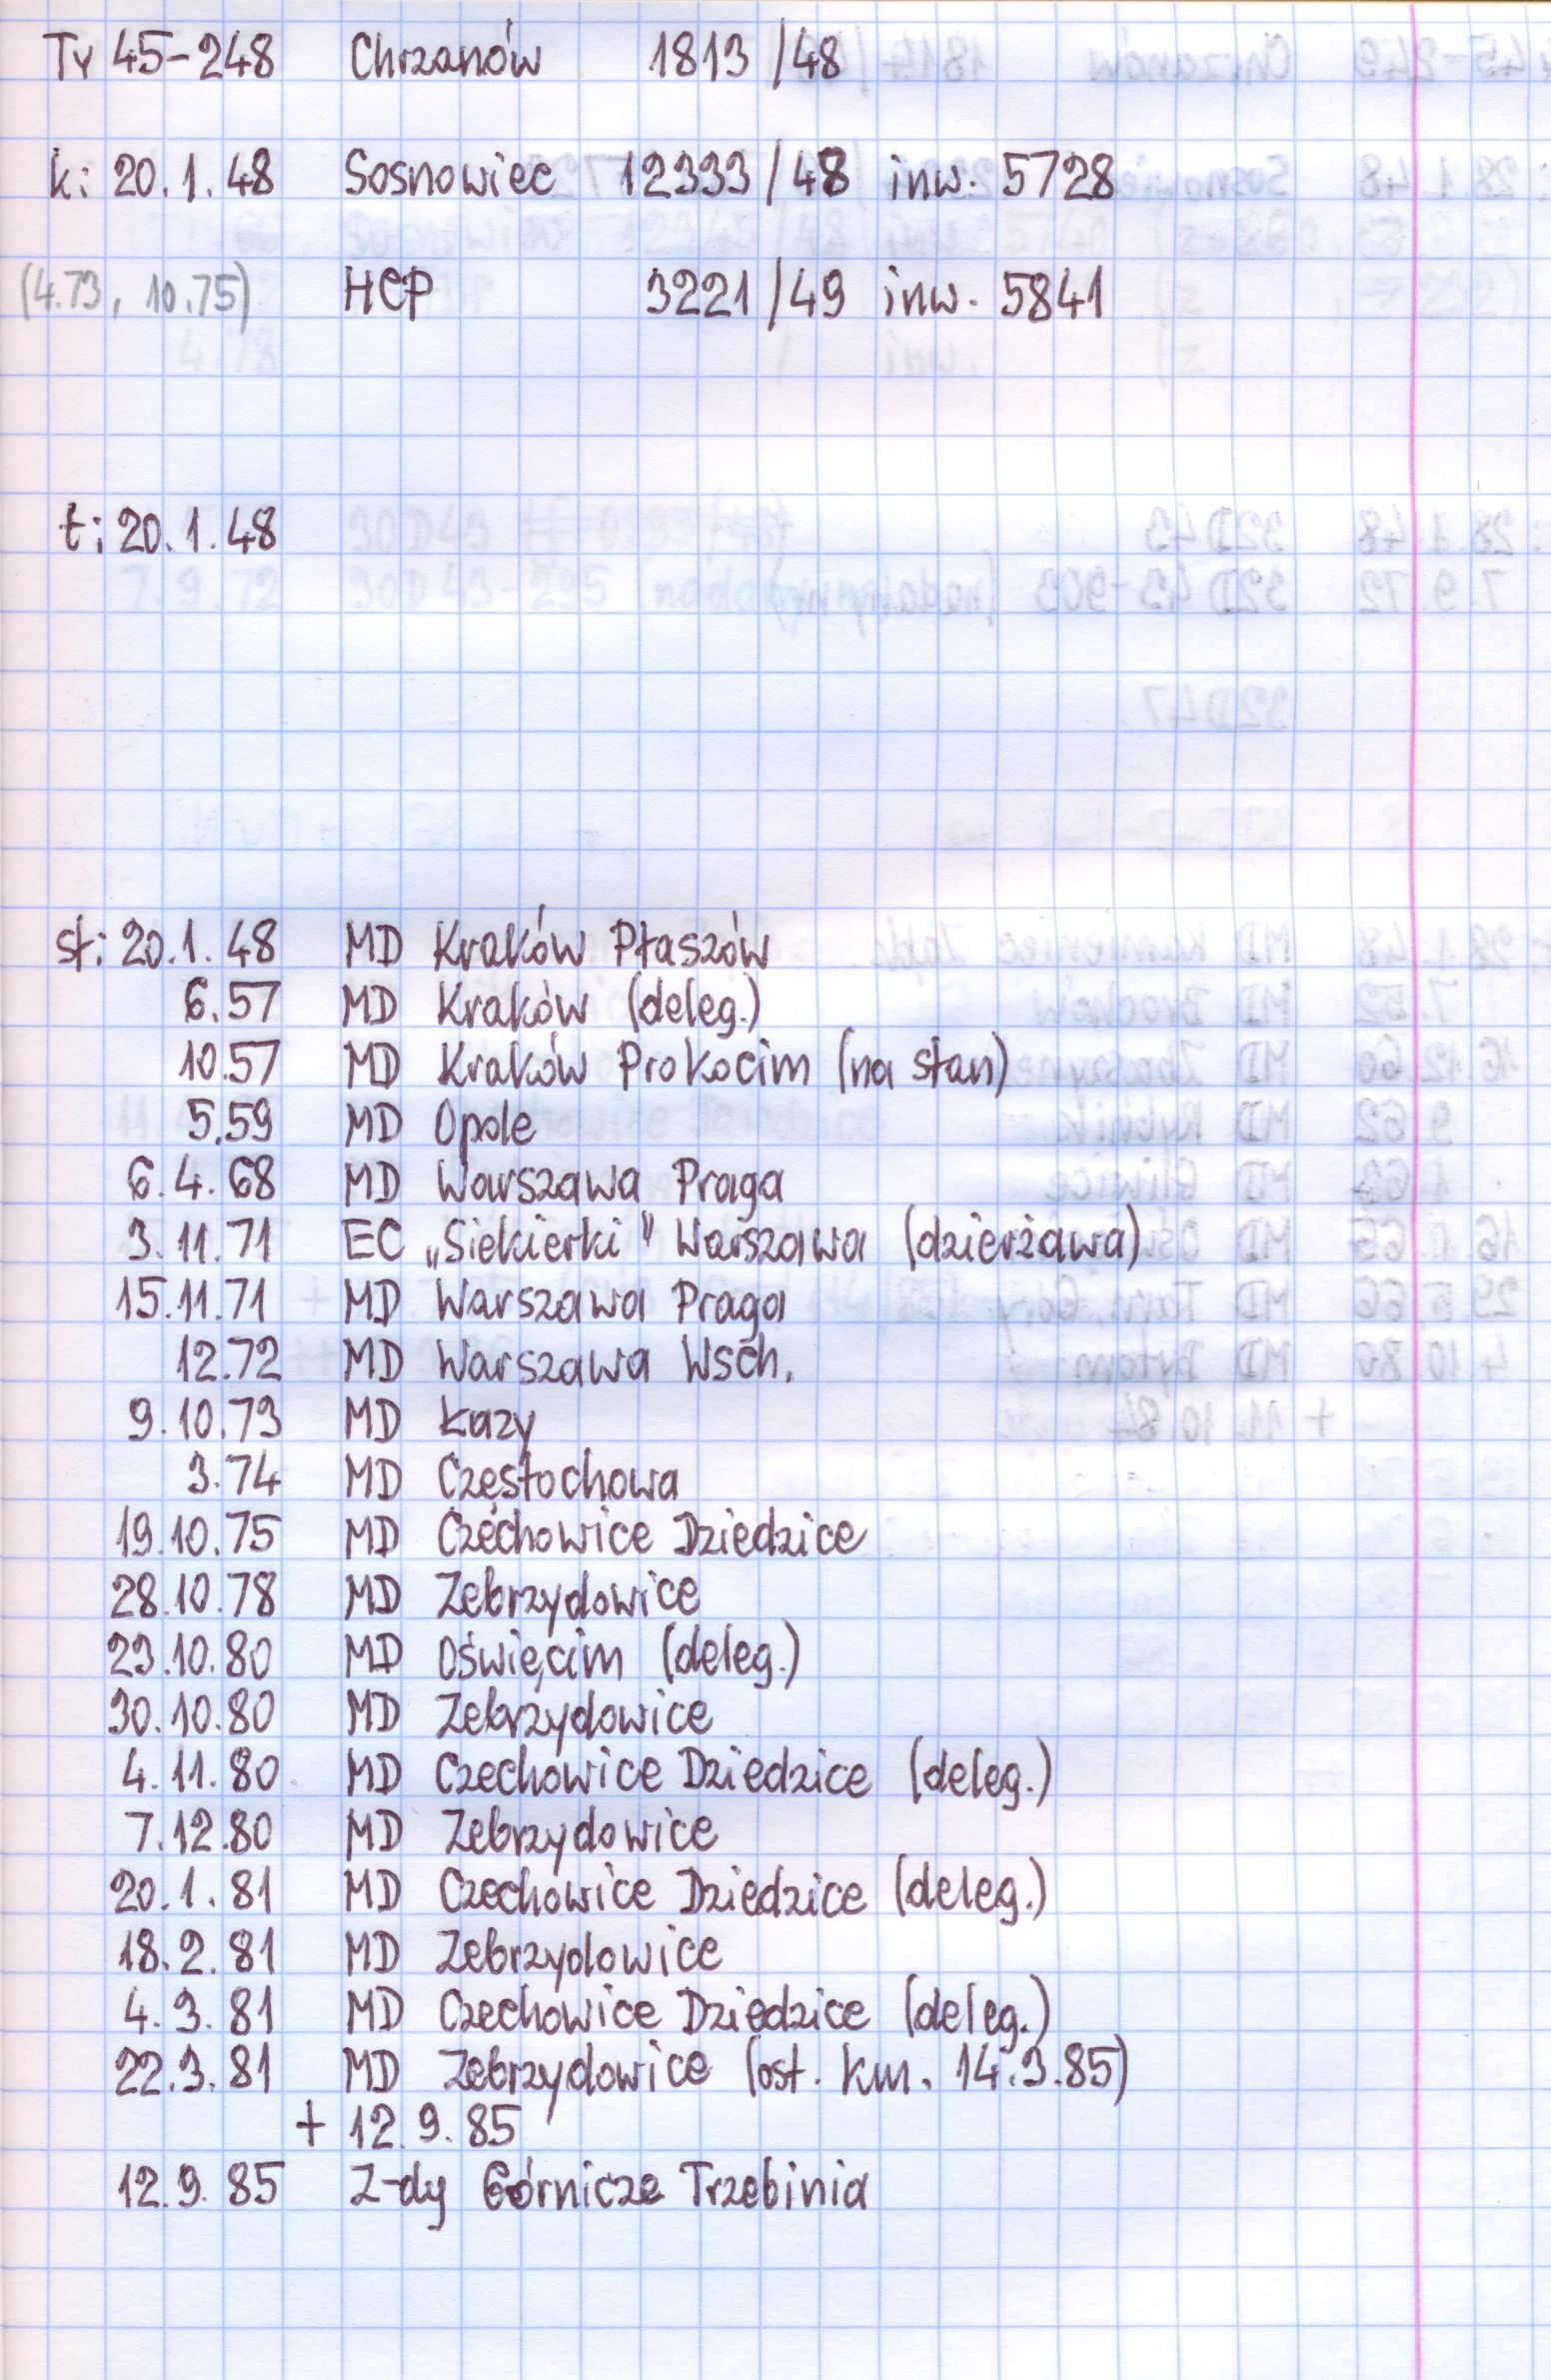 Ty 45-248 Chrzanów 1813/48
k: 20.1.48 Sosnowiec 12333/48 inw. 5728
(4.73, 10.75) HCP 3221/49 inw. 5841
t: 20.1.48
st: 20.1.48 MD Kraków Płaszów
6.57 MD Kraków (deleg.)
10.57 MD Kraków Prokocim (na stan)
5.59 MD Opole
6.4.68 MD Warszawa Praga
3.11.71 EC „Siekierki" Warszawa (dzierżawa)
15.11.71 MD Warszawa Praga
12.72 MD Warszawa Wsch.
9.10.73 MD Łazy
3.74 MD Częstochowa
19.10.75 MD Czechowice Dziedzice
28.10.78 MD Zebrzydowice
23.10.80 MD Oświęcim (deleg.)
30.10.80 MD Zebrzydowice
4.11.80 MD Czechowice Dziedzice (deleg.)
7.12.80 MD Zebrzydowice
20.1.81 MD Czechowice Dziedzice (deleg.)
18.2.81 MD Zebrzydowice
4.3.81 MD Czechowice Dziedzice (deleg.)
22.3.81 MD Zebrzydowice (ost. km. 14.3.85)
+ 12.9.85
12.9.85 Z-dy Górnicze Trzebinia